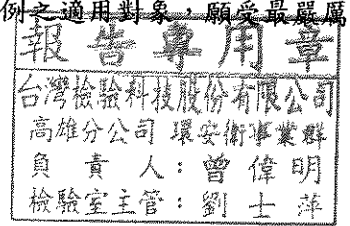 例之適用對象，願受最嚴厲
報告專用章
台灣檢驗科技股份有限公司
高雄分公司 環安衛事業群
負責人：曾偉明
檢驗室主管：劉士萍